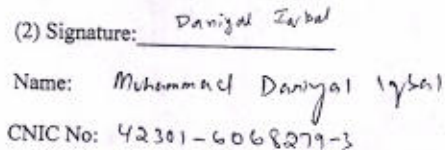 (2) Signature: Daniyal Iqbal
Name: Muhammad Daniyal Iqbal
CNIC No: 42301-6068279-3